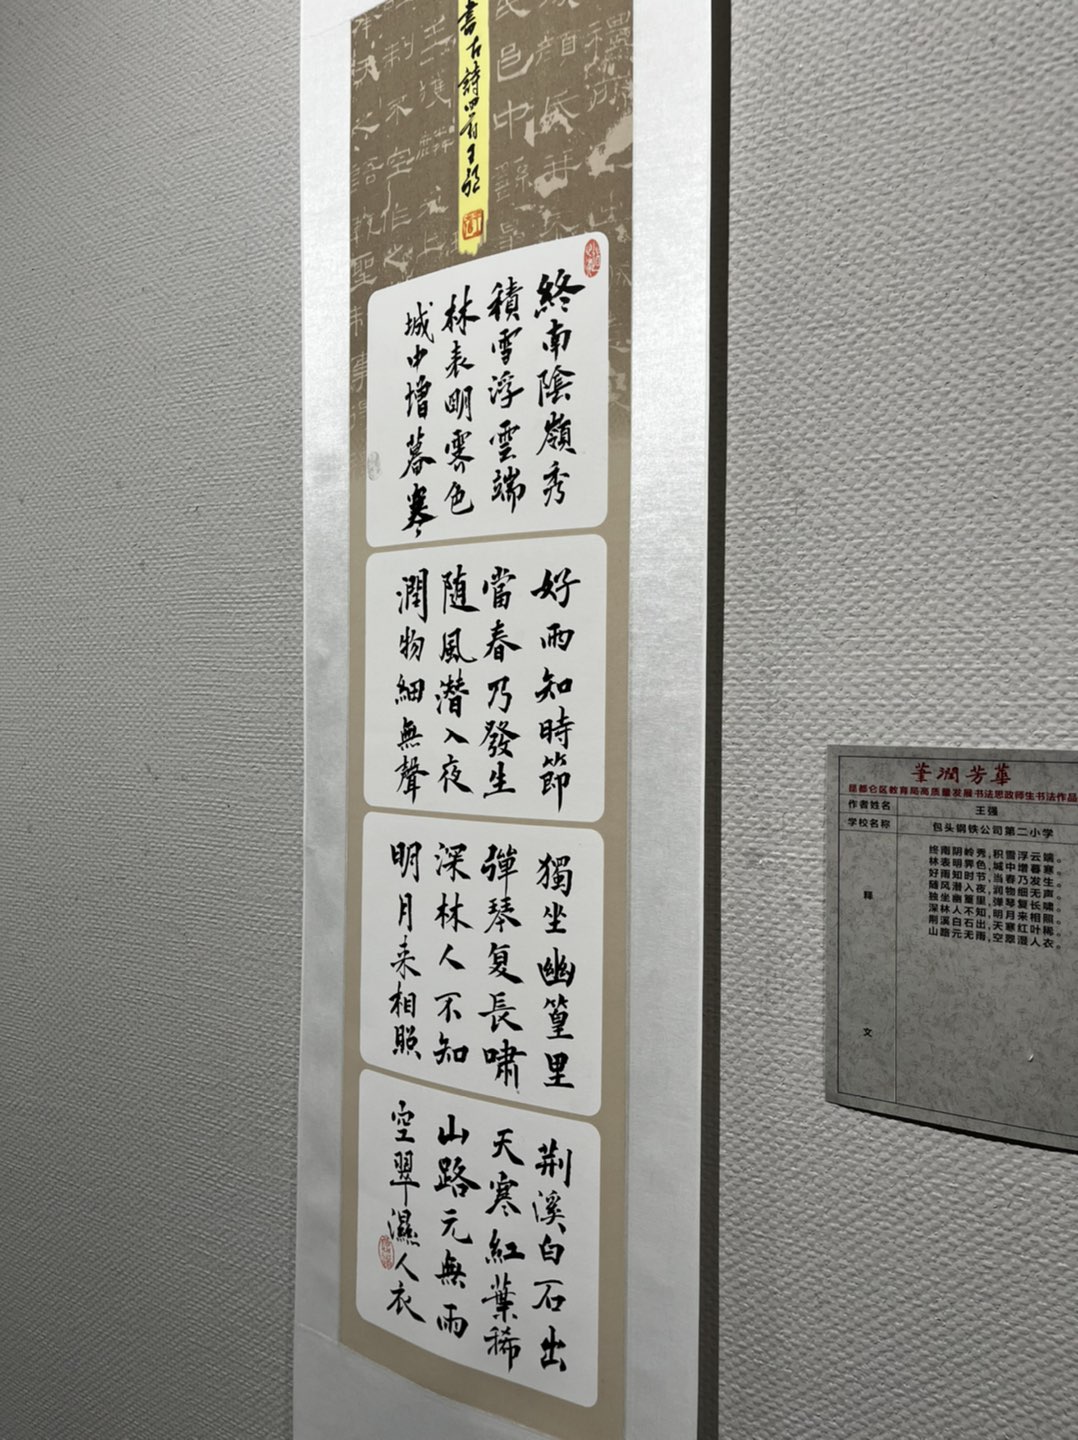 書古詩四首王强
終南陰嶺秀
積雪浮雲端
林表明霽色
城中增暮寒
好雨知時節
當春乃發生
随風潜入夜
潤物細無聲
獨坐幽篁里
彈琴复長嘯
深林人不知
明月来相照
荆溪白石出
天寒紅葉稀
山路元無雨
空翠濕人衣
筆潤芳華
昆都仑区教育局高质量发展书法思政师生书法作品
作者姓名 王强
学校名称 包头钢铁公司第二小学
释文
终南阴岭秀,积雪浮云端。
林表明霁色,城中增暮寒。
好雨知时节,当春乃发生。
随风潜入夜,润物细无声。
独坐幽篁里,弹琴复长啸。
深林人不知,明月来相照。
荆溪白石出,天寒红叶稀。
山路元无雨,空翠湿人衣。